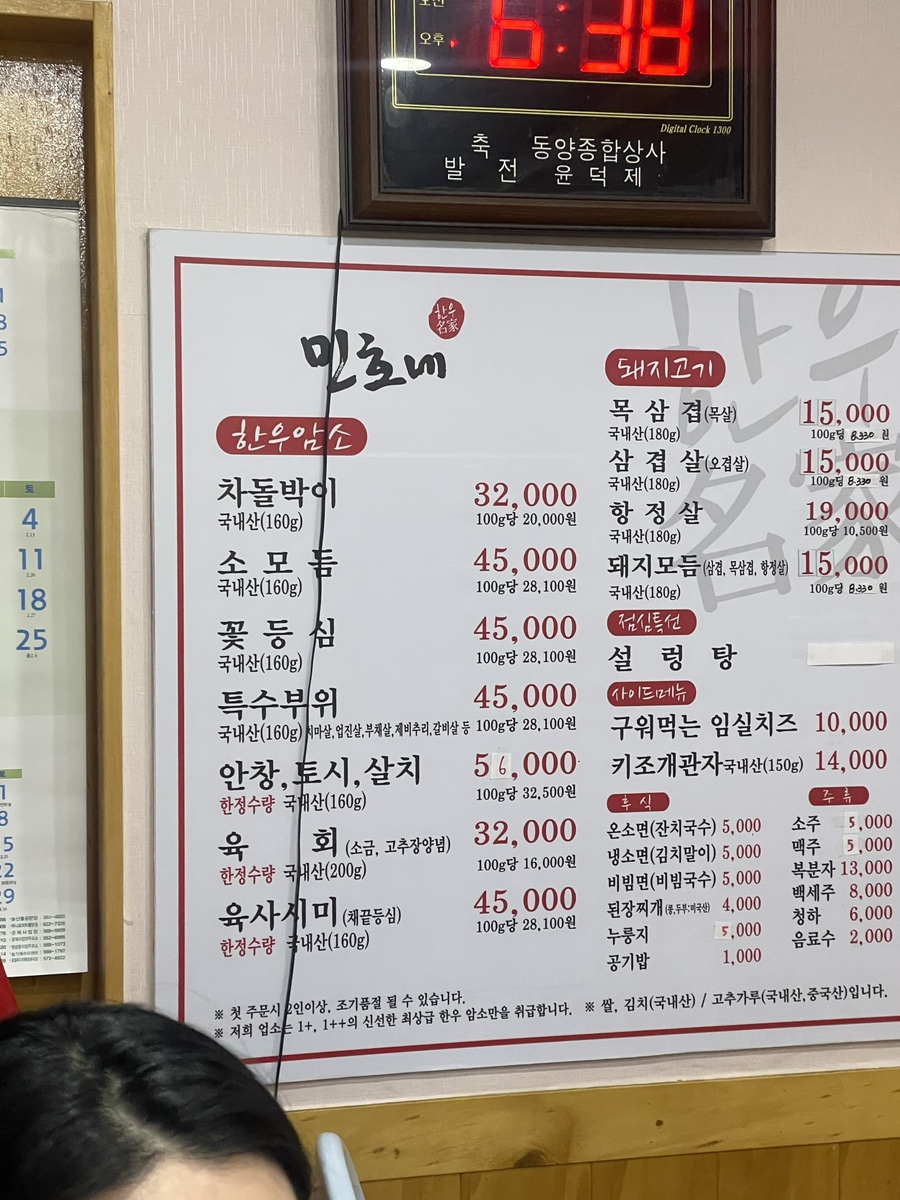 오전
오후 6:38
Digital Clock 1300
축 동양종합상사
발 전 윤 덕 제
토
4
11
18
25
한우
名家
민호네
한우암소
차돌박이 32,000
국내산(160g) 100g당 20,000원
소 모 듬 45,000
국내산(160g) 100g당 28,100원
꽃 등 심 45,000
국내산(160g) 100g당 28,100원
특수부위 45,000
국내산(160g) 치마살,업진살,부채살,제비추리,갈비살 등 100g당 28,100원
안창,토시,살치 56,000
한정수량 국내산(160g) 100g당 32,500원
육 회 (소금, 고추장양념) 32,000
한정수량 국내산(200g) 100g당 16,000원
육사시미 (채끝등심) 45,000
한정수량 국내산(160g) 100g당 28,100원
돼지고기
목 삼 겹(목살) 15,000
국내산(180g) 100g당 8.330 원
삼 겹 살(오겹살) 15,000
국내산(180g) 100g당 8.330 원
항 정 살 19,000
국내산(180g) 100g당 10,500원
돼지모듬(삼겹, 목삼겹, 항정살) 15,000
국내산(180g) 100g당 8.330 원
점심특선
설 렁 탕
사이드메뉴
구워먹는 임실치즈 10,000
키조개관자국내산(150g) 14,000
후 식
온소면(잔치국수) 5,000
냉소면(김치말이) 5,000
비빔면(비빔국수) 5,000
된장찌개(콩,두부:미국산) 4,000
누룽지 5,000
공기밥 1,000
주 류
소주 5,000
맥주 5,000
복분자 13,000
백세주 8,000
청하 6,000
음료수 2,000
※ 첫 주문시 2인이상, 조기품절 될 수 있습니다.
※ 쌀, 김치(국내산) / 고추가루(국내산,중국산)입니다.
※ 저희 업소는 1+, 1++의 신선한 최상급 한우 암소만을 취급합니다.
한우
名家